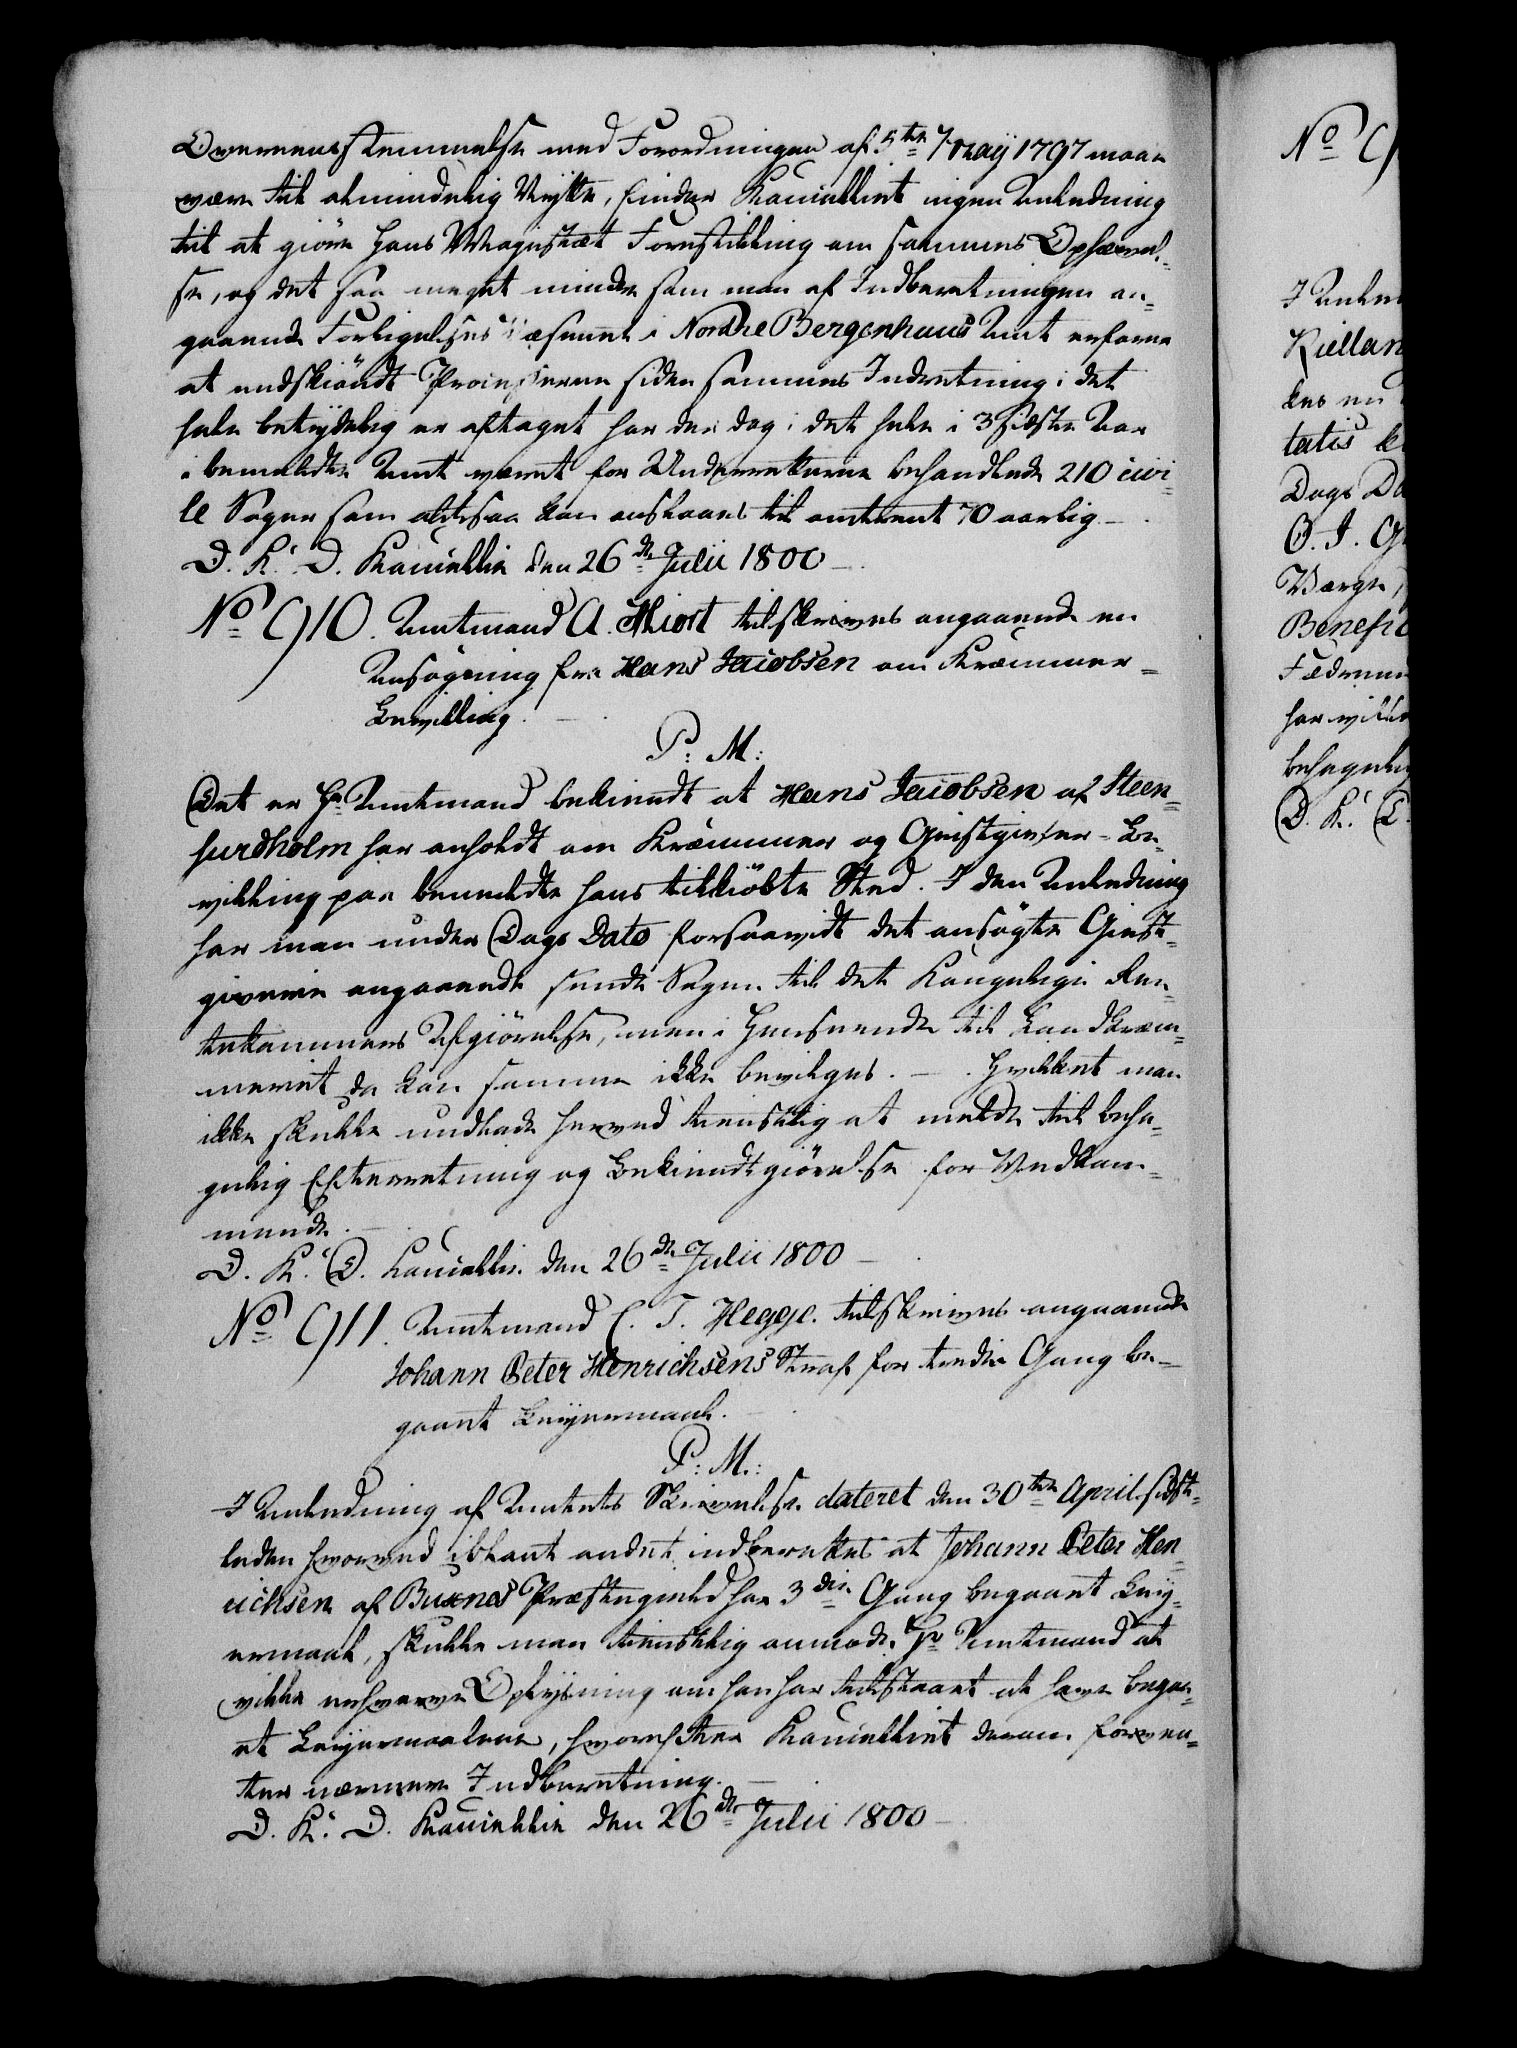 Overeensstemmelse med Forordningen af 5te Maij 1797 maae
være til almindelig Nytte, finder Kancelliet ingen Anledning
til at giöre Hans Majestæt Forestilling om sammes Ophævel-
se, og det saa meget mindre som man af Indberetningen an-
gaaende Forligelses Væsenet i Nordre Bergenhuus Amt erfarer
at endskiöndt Processerne siden sammes Indretning i det
hele betydelig er aftaget har der dog i det hele i 3 sidste Aar
i bemeldte Amt været for Underretterne behandlede 210 civi-
le Sager som altsaa kan anslaaes til omtrent 70 aarlig.
D. K. D. Kancellie den 26de Julii 1800
No 910. Amtmand A. Hiort tilskrives angaaende en
Ansögning fra Hans Jacobsen om Kræmmer-
Bevilling.
P: M:
Det er Hr Amtmand bekiendt at Hans Jacobsen af Steen-
surdholm har anholdt om Kræmmer og Giestgiver-Be-
villing paa bemeldte hans tilkiöbte Sted. I den Anledning
har man under Dags Dato forsaavidt det ansögte Giest-
giverie angaaende sendt Sagen til det Kongelige Ren-
tekammers Afgiörelse, men i Henseende til Landkræm-
meriet da kan samme ikke bevilges. Hvilket man
ikke skulle undlade herved tienstlig at melde til beha-
gelig Efterretning og Bekiendtgiörelse for Vedkom-
mende.
D. K. D. Cancellie den 26de Julii 1800
No 911. Amtmand C. T. Hegge. tilskrives angaaende
Johann Peter Henrichsens Straf for tredie Gang be-
gaaet Leiermaal.
P: M:
I Anledning af Amtets Skrivelse dateret den 30te April sidst-
leden hvorved iblant andet indberettes at Johann Peter Hen-
richsen af Buxnes Præstegield har 3die Gang begaaet Leij-
ermaal, skulle man tienstlig anmode Hr Amtmand at
ville erhverve Oplysning om han har tilstaaet at have begaa-
et Leijermaalene, hvorefter Kancelliet derom forven-
ter nærmere Indberetning.
D. K. D. Kancellie den 26de Julii 1800
No 9
Kiellan
tatis
Dags Da
O. J. G
Værge,
Benefic
D. K. D.